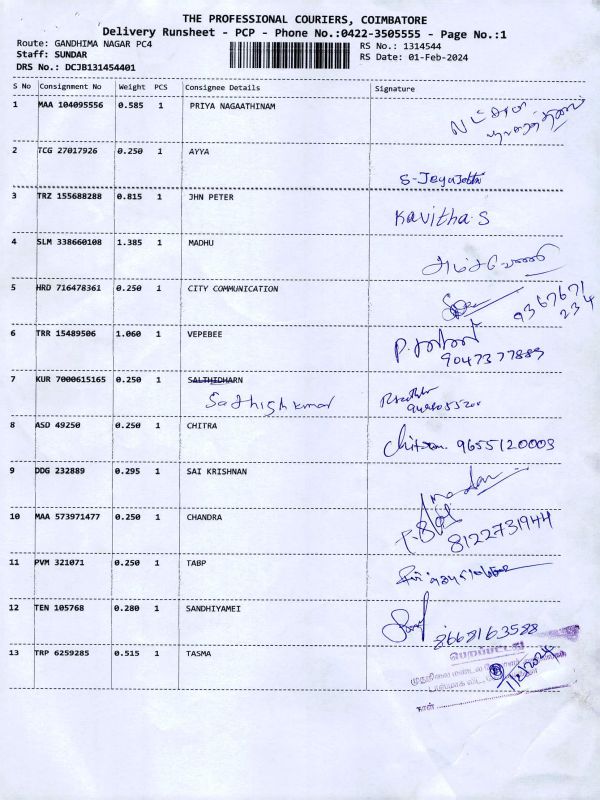 THE PROFESSIONAL COURIERS, COIMBATORE
Delivery Runsheet - PCP - Phone No.:0422-3505555 - Page No.:1
Route: GANDHIMA NAGAR PC4
RS No.: 1314544
Staff: SUNDAR
RS Date: 01-Feb-2024
DRS No.: DCJB131454401
S No Consignment No Weight PCS Consignee Details Signature
1 MAA 104095556 0.585 1 PRIYA NAGAATHINAM
2 TCG 27017926 0.250 1 AYYA
3 TRZ 155688288 0.815 1 JHN PETER Kavitha S
4 SLM 338660108 1.385 1 MADHU
5 HRD 716478361 0.250 1 CITY COMMUNICATION 9367671
234
6 TRR 15489506 1.060 1 VEPEBEE
9047377889
7 KUR 7000615165 0.250 1 SALTHIDHARN
Sathishkumar
8 ASD 49250 0.250 1 CHITRA 9655120003
9 DDG 232889 0.295 1 SAI KRISHNAN
10 MAA 573971477 0.250 1 CHANDRA 8122731944
11 PVM 321071 0.250 1 TABP
12 TEN 105768 0.280 1 SANDHIYAMEI 8668163588
13 TRP 6259285 0.515 1 TASMA
பெறப்பட்டது
1/2/2024
நாள்